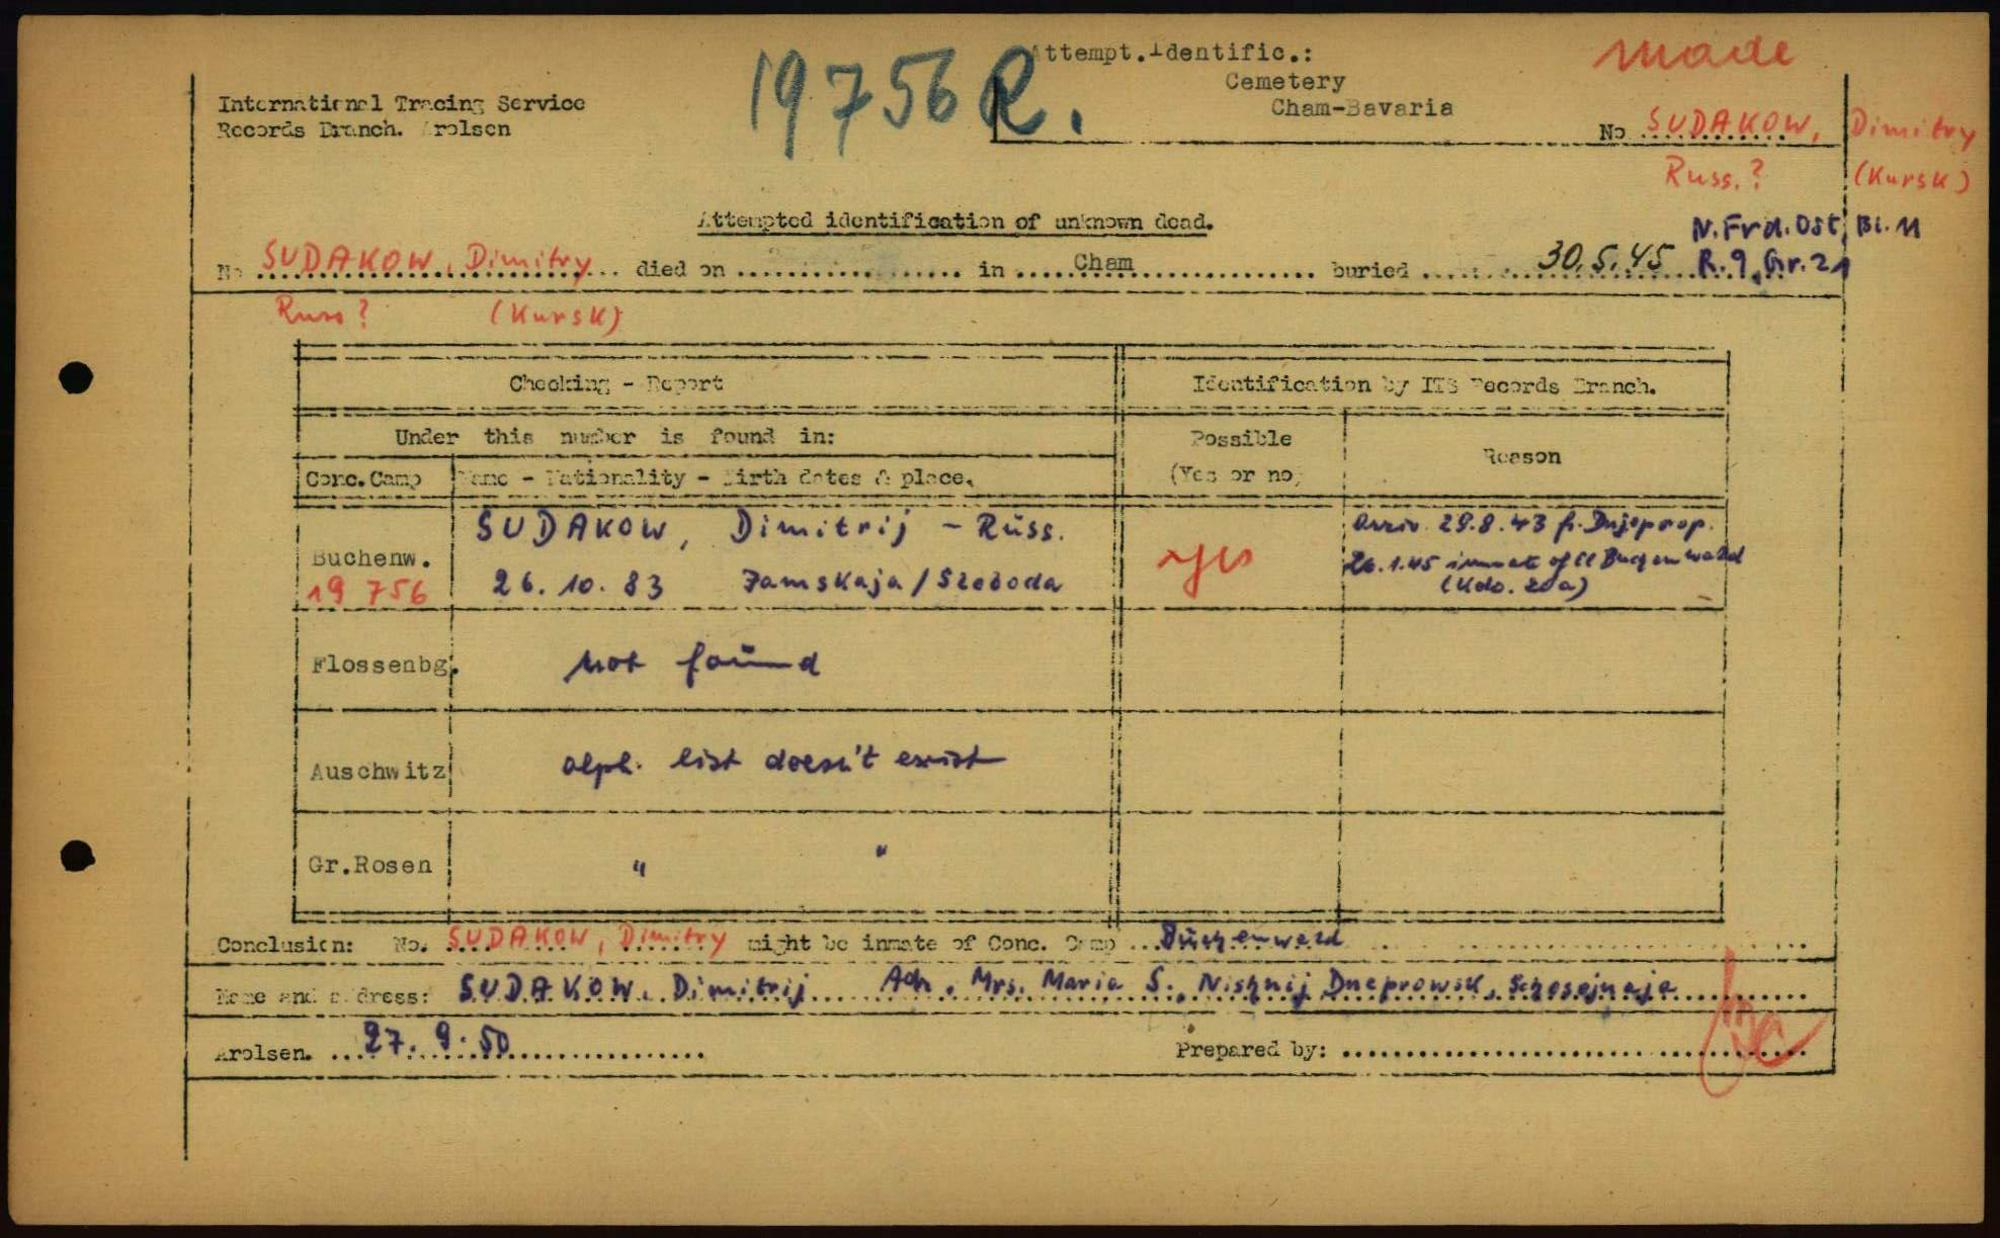 Attempt.Identific.:
Cemetery
Cham-Bavaria
made
19756 R.
International Tracing Service
Records Branch. Arolsen
No SUDAKOW, Dimitry
Russ.? (Kursk)
Attempted identification of unknown dead.
N.Frd.Ost, Bl.11
No SUDAKOW, Dimitry died on in Cham buried 30.5.45 R.9, Gr.21
Russ? (Kursk)
Checking - Report
Identification by ITS Records Branch.
Under this number is found in:
Possible
(Yes or no)
Reason
Conc.Camp
Name - Nationality - Birth dates & place.
Buchenw.
19 756
SUDAKOW, Dimitrij - Russ.
26. 10. 83 Jamskaja / Sloboda
yes
arriv. 29.8.43 fr. Dnjeprop.
26.1.45 inmate of CC Buchenwald
(Kdo.
Flossenbg.
not found
Auschwitz
alph. list doesn't exist
Gr.Rosen
" "
Conclusion: No. SUDAKOW, Dimitry might be inmate of Conc. Camp Buchenwald
Name and address: SUDAKOW, Dimitrij Adr. Mrs. Maria S., Nishnij Dneprowsk, Schosejnaja
Arolsen. 27. 9. 50
Prepared by: